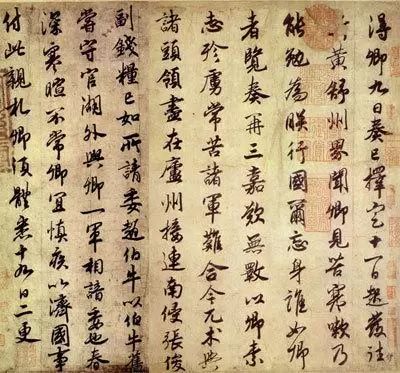 得卿九日奏已擇定十一日起發往
蘄黃舒州界聞卿見苦寒嗽乃
能勉為朕行國爾忘身誰如卿
者覽奏再三嘉歎無斁以卿素
志殄虜常苦諸軍難合今兀朮與
諸頭領盡在廬州接連南侵張俊
副錢糧已如所請委趙伯牛以伯牛舊
嘗守官湖外與卿一軍相諳委也春
深寒暄不常卿宜慎疾以濟國事
付此親札卿須體悉十九日二更